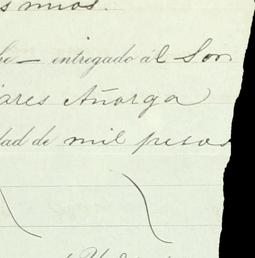 s mios.
he — entregado ál Sor
ares Añorga
dad de mil pesos